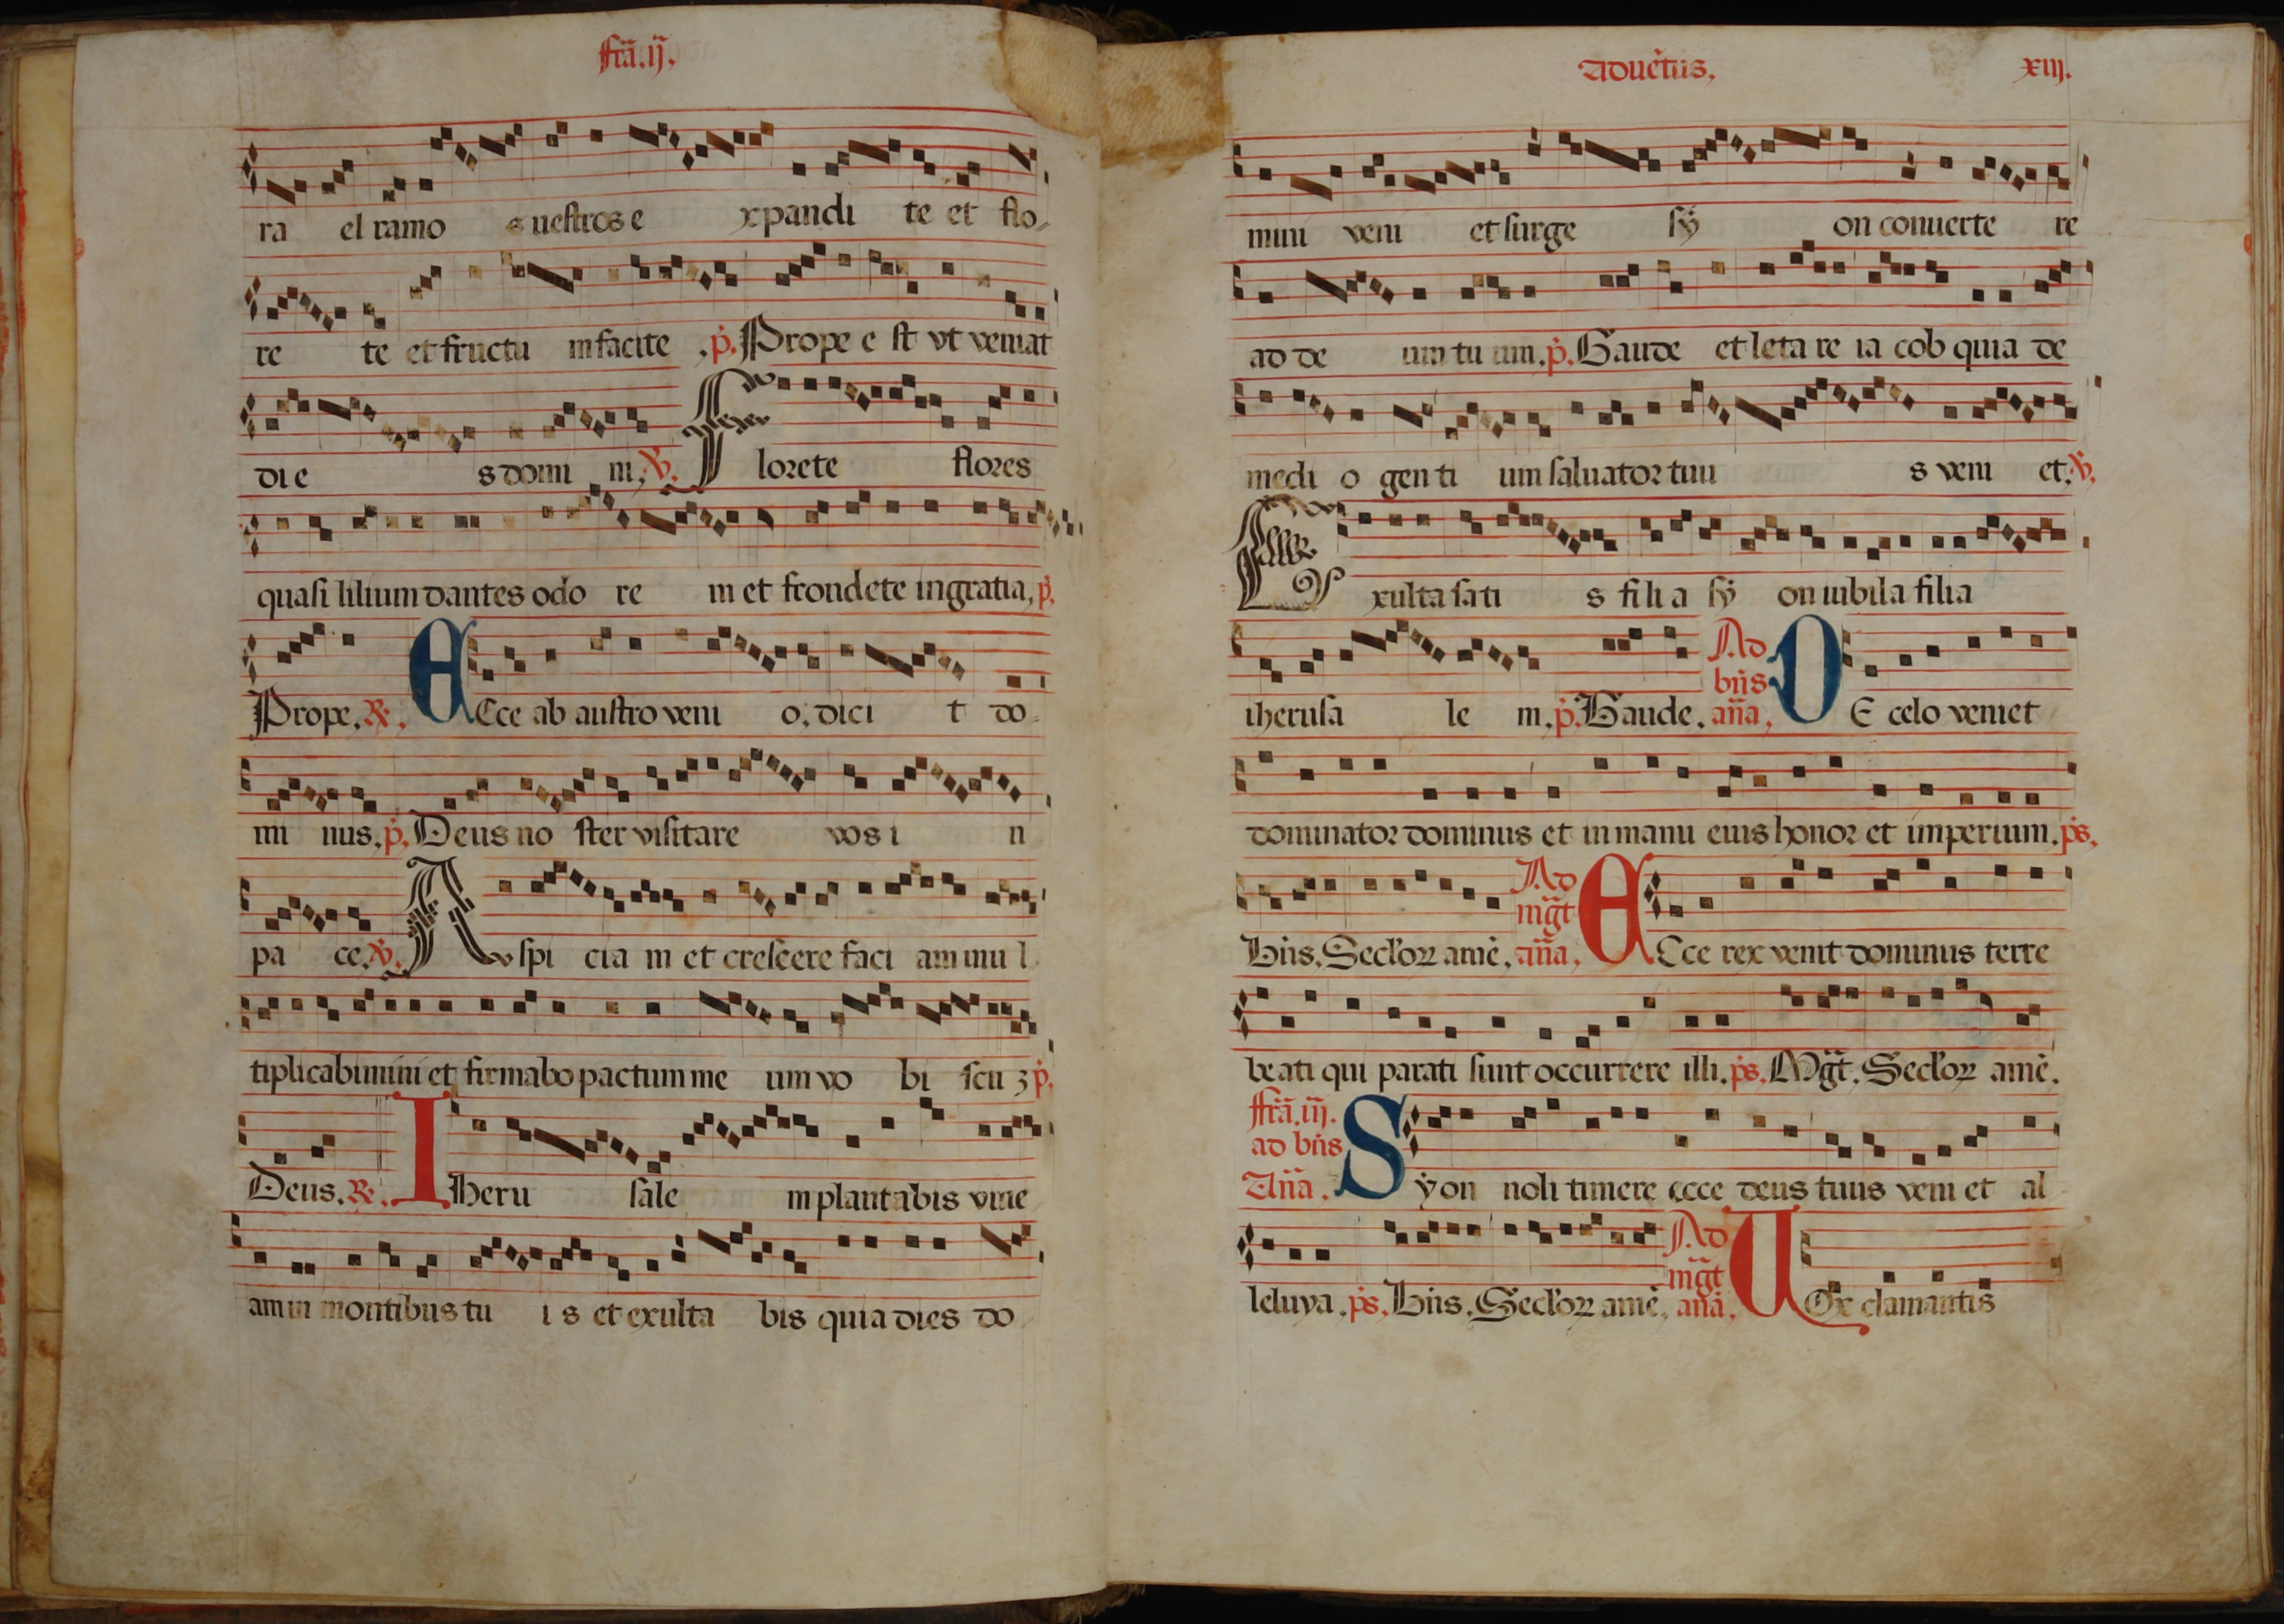 fr̃a.ij.
ra el ramo s uestros e xpandi te et flo-
re te et fructu m facite .p̃. Prope e st vt veniat
di e s domi ni. V̷. Florete flores
quasi lilium dantes odo re m et frondete in gratia, p̃.
Prope. R̷. ECce ab austro veni o, dici t do-
mi nus. p̃. Deus no ster visitare vos i n
pa ce. V̷. Aspi cia m et crescere faci am mu l
tiplicabimini et firmabo pactum me um vo bi scu ꝫ p̃.
Deus. R̷. Iheru sale m plantabis vine
am in montibus tu i s et exulta bis quia dies do
aduẽtus.
xiij.
mini veni et surge sÿ on conuerte re
ad de um tu um. p̃. Gaude et leta re ia cob quia de
medi o gen ti um saluator tuu s veni et. V̷.
Exulta sati s fili a sÿ on iubila filia
iherusa le m. p̃. Gaude. Ad bñs añа, DE celo veniet
dominator dominus et in manu eius honor et imperium. p̃s.
Bñs. Secl'oꝝ amẽ. Ad mg̃t añа, ECce rex venit dominus terre
beati qui parati sunt occurrere illi. p̃s. Mg̃t. Secl'oꝝ amẽ.
ffr̃a. iij.
ad bñs
Añа. Sÿon noli timere ecce deus tuus veni et al
leluya. p̃s. Bñs. Secl'oꝝ amẽ, Ad mg̃t añа. VOx clamantis